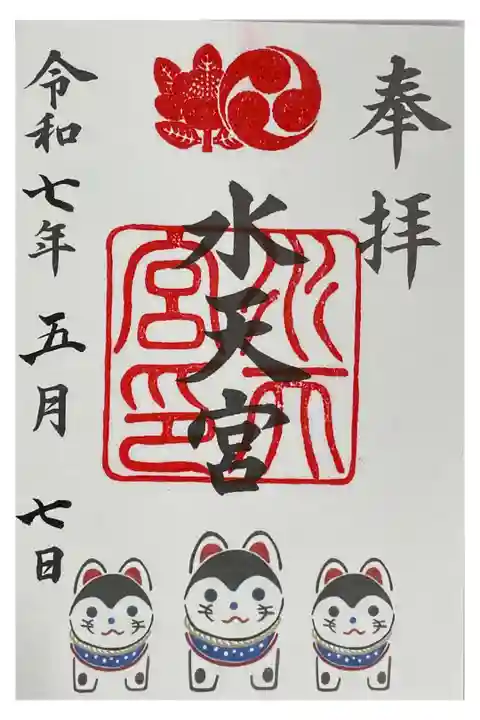 奉拝
水天宮
水天宮印
令和七年 五月 七日